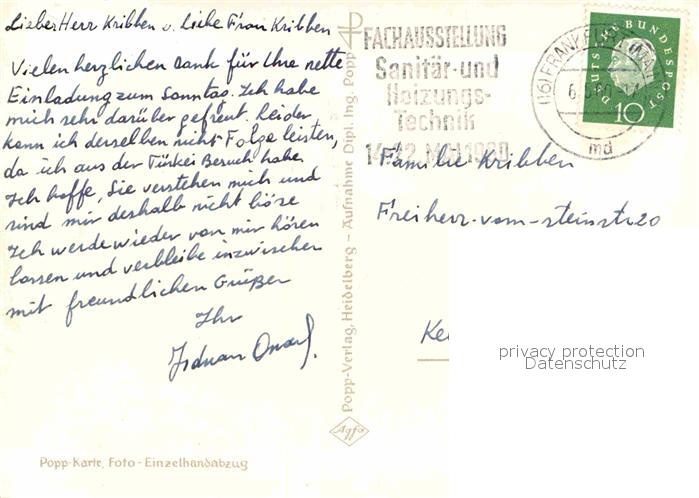 Lieber Herr Kribben u. Liebe Frau Kribben
Vielen herzlichen Dank für Ihre nette
Einladung zum Sonntag. Ich habe
mich sehr darüber gefreut. Leider
kann ich derselben nicht Folge leisten,
da ich aus der Türkei Besuch habe
Ich hoffe, Sie verstehen mich und
sind mir deshalb nicht böse
Ich werde wieder von mir hören
lassen und verbleibe inzwischen
mit freundlichen Grüßen
Ihr
Popp-Karte, Foto-Einzelhandabzug
Popp-Verlag, Heidelberg - Aufnahme Dipl. Ing. Popp
Agfa
FACHAUSSTELLUNG
Sanitär-und
Heizungs-
Technik
(16) FRANKFURT (MAIN)
md
DEUTSCHE BUNDESPOST
10
Familie Kribben
Freiherr-vom-steinstr 20
Ke
privacy protection
Datenschutz